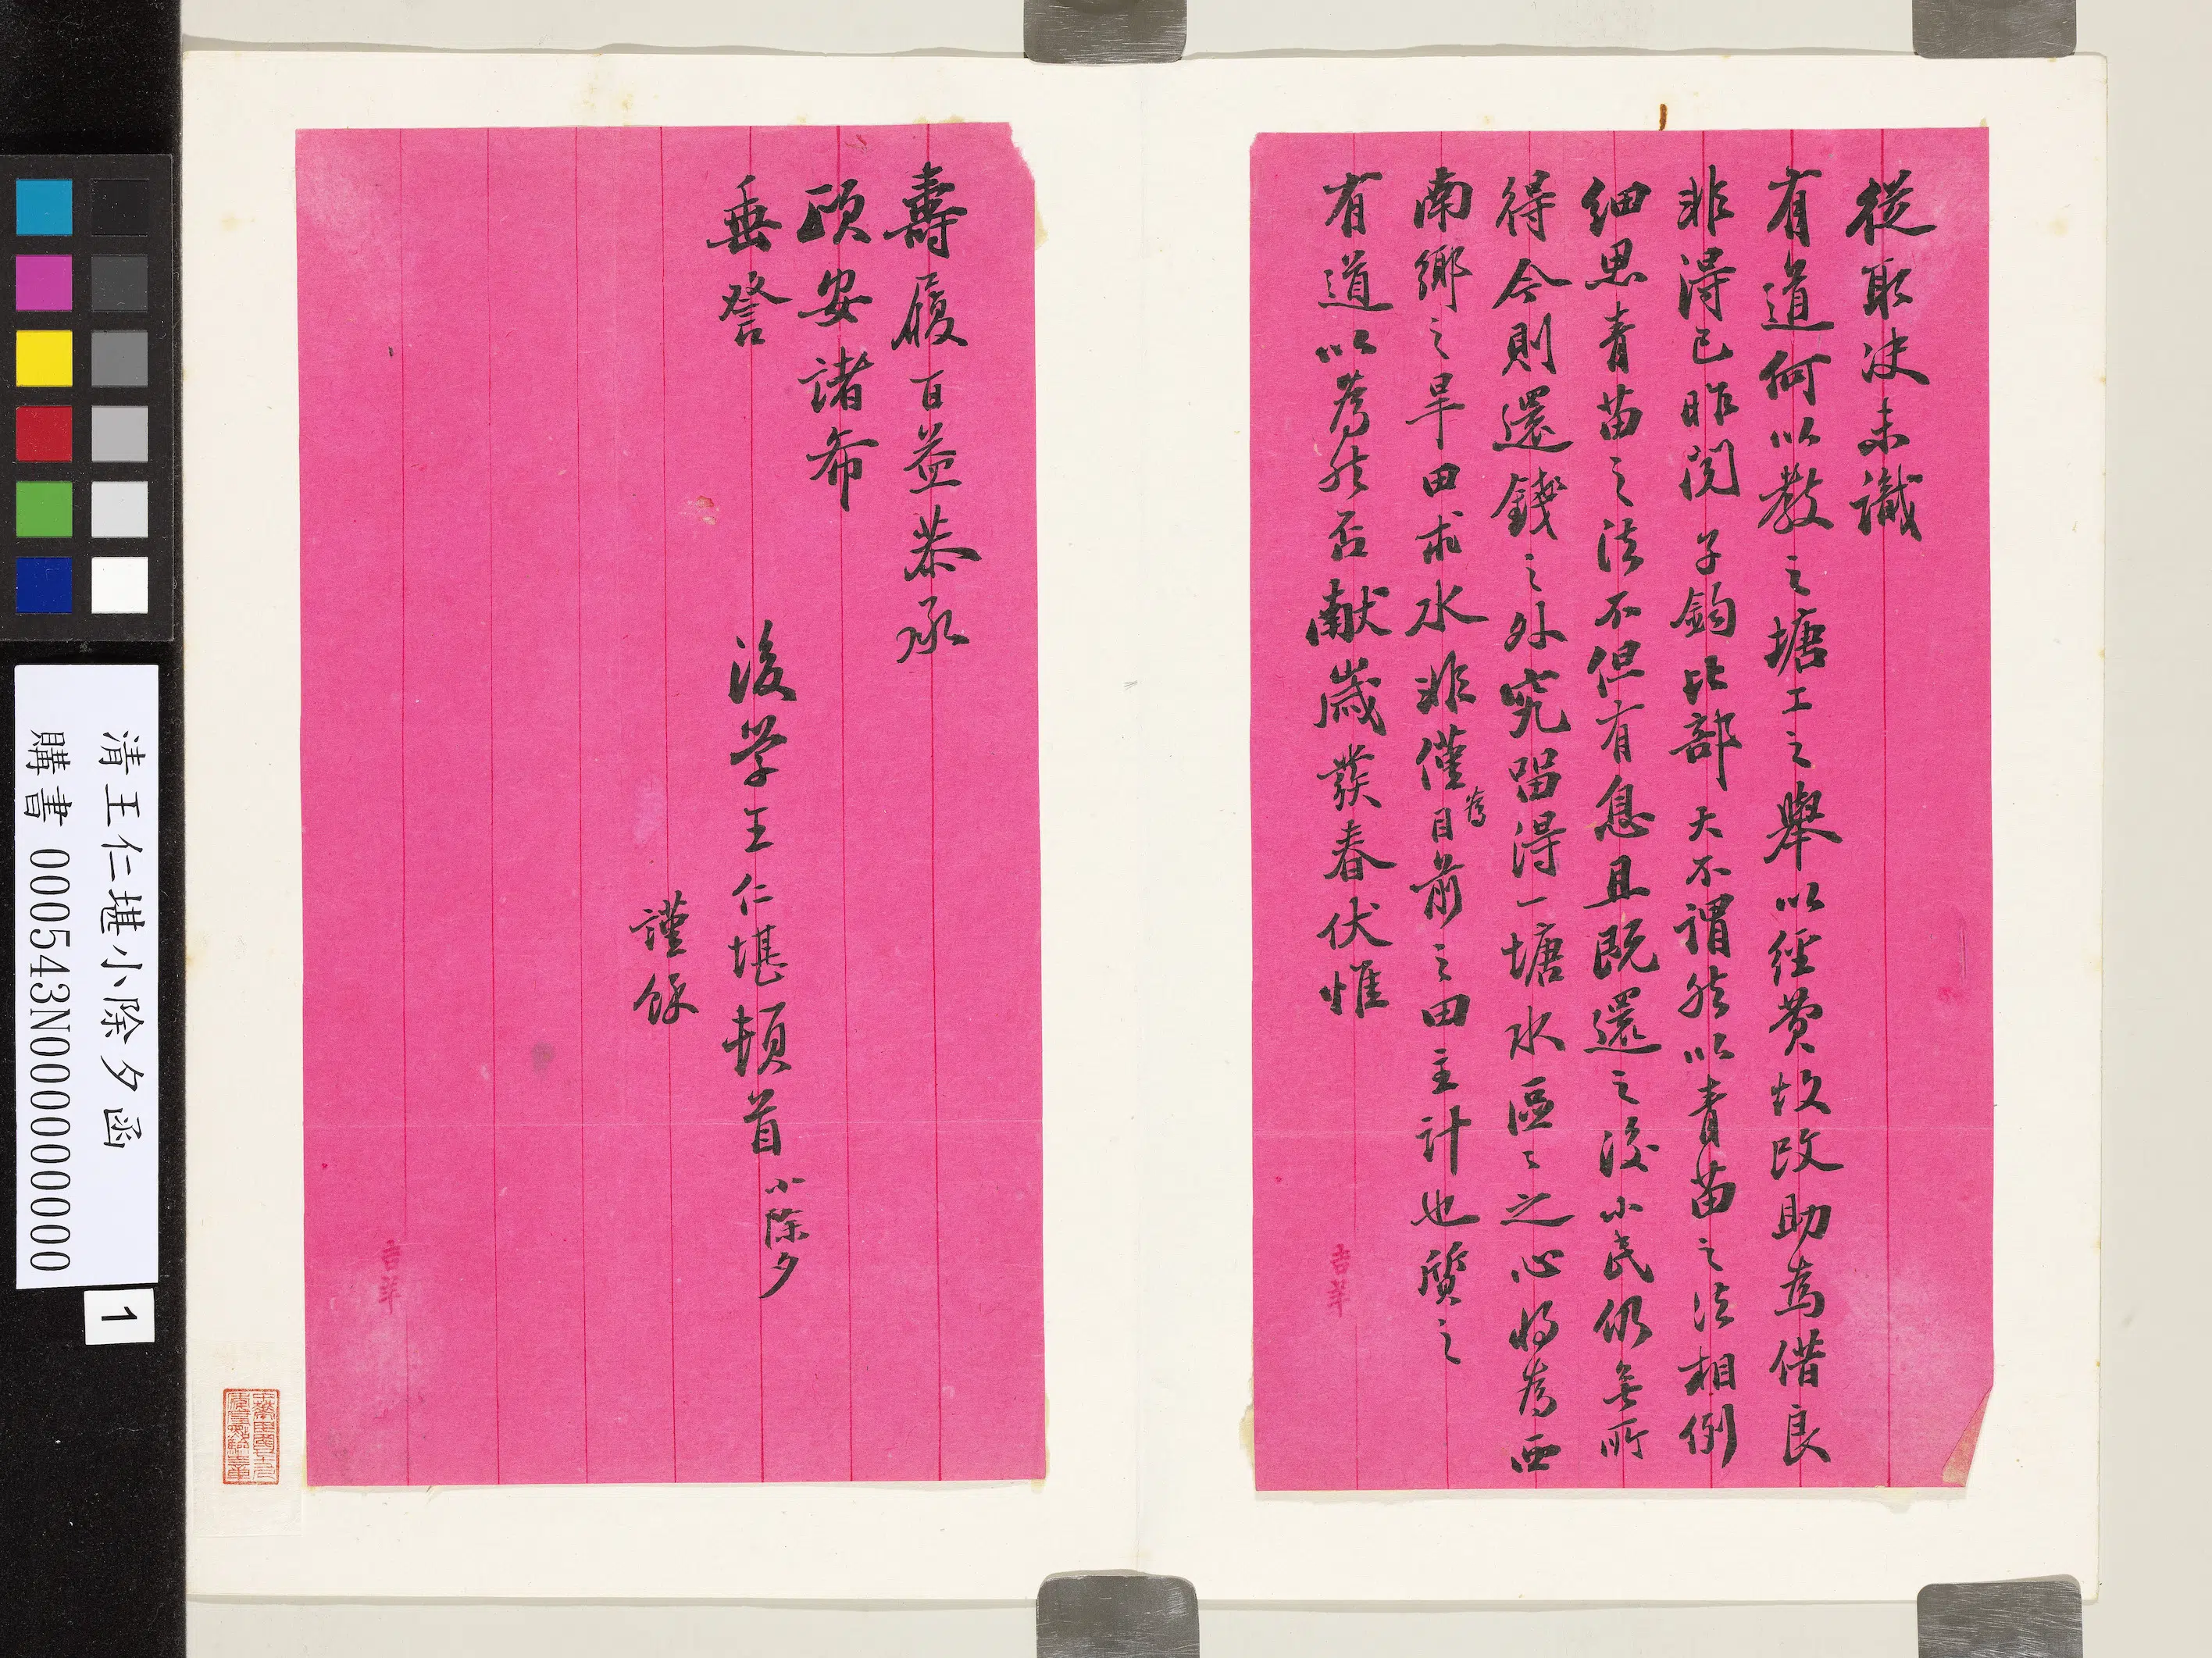 從取決未識
有道何以教之塘工之舉以經費故改助為借良
非得已昨閱子鈞比部天不謂然以青苗之法相例
細思青苗之法不但有息且既還之後小民仍無所
得今則還錢之外究留得一塘水區々之心將為西
南鄉之旱田求水非僅為目前之田主計也質之
有道以為然否獻歲發春伏惟
壽履百益恭承
頤安諸希
垂詧
後学王仁堪頓首小除夕
謹餘
吉羊
吉羊
清王仁堪小除夕函
購書000543N000000000
1